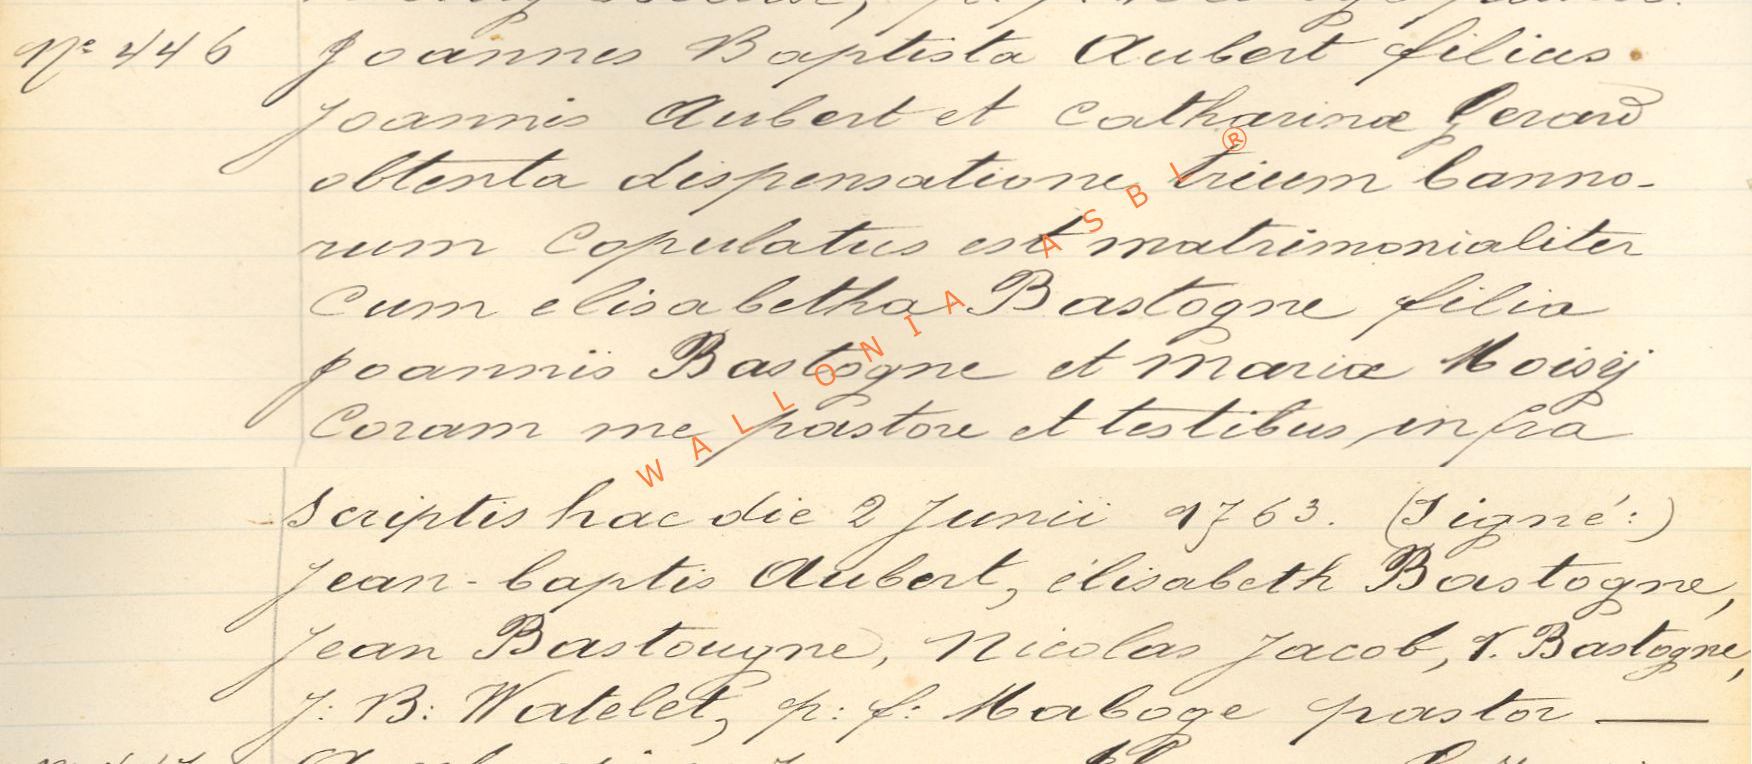 Nº 446 Joannes Baptista Aubert filius
Joannis Aubert et Catharinæ Gerard
obtenta dispensatione trium banno-
rum Copulatus est matrimonialiter
Cum elisabetha Bastogne filia
Joannis Bastogne et Mariæ Moisÿ
Coram me pastore et testibus infra
Scriptis hac die 2 Junii 1763. (Signé:)
Jean-baptis Aubert, élisabeth Bastogne,
Jean Bastougne, Nicolas Jacob, V. Bastogne,
J: B: Watelet, p: f: Maboge pastor —
WALLONIA ASBL ®